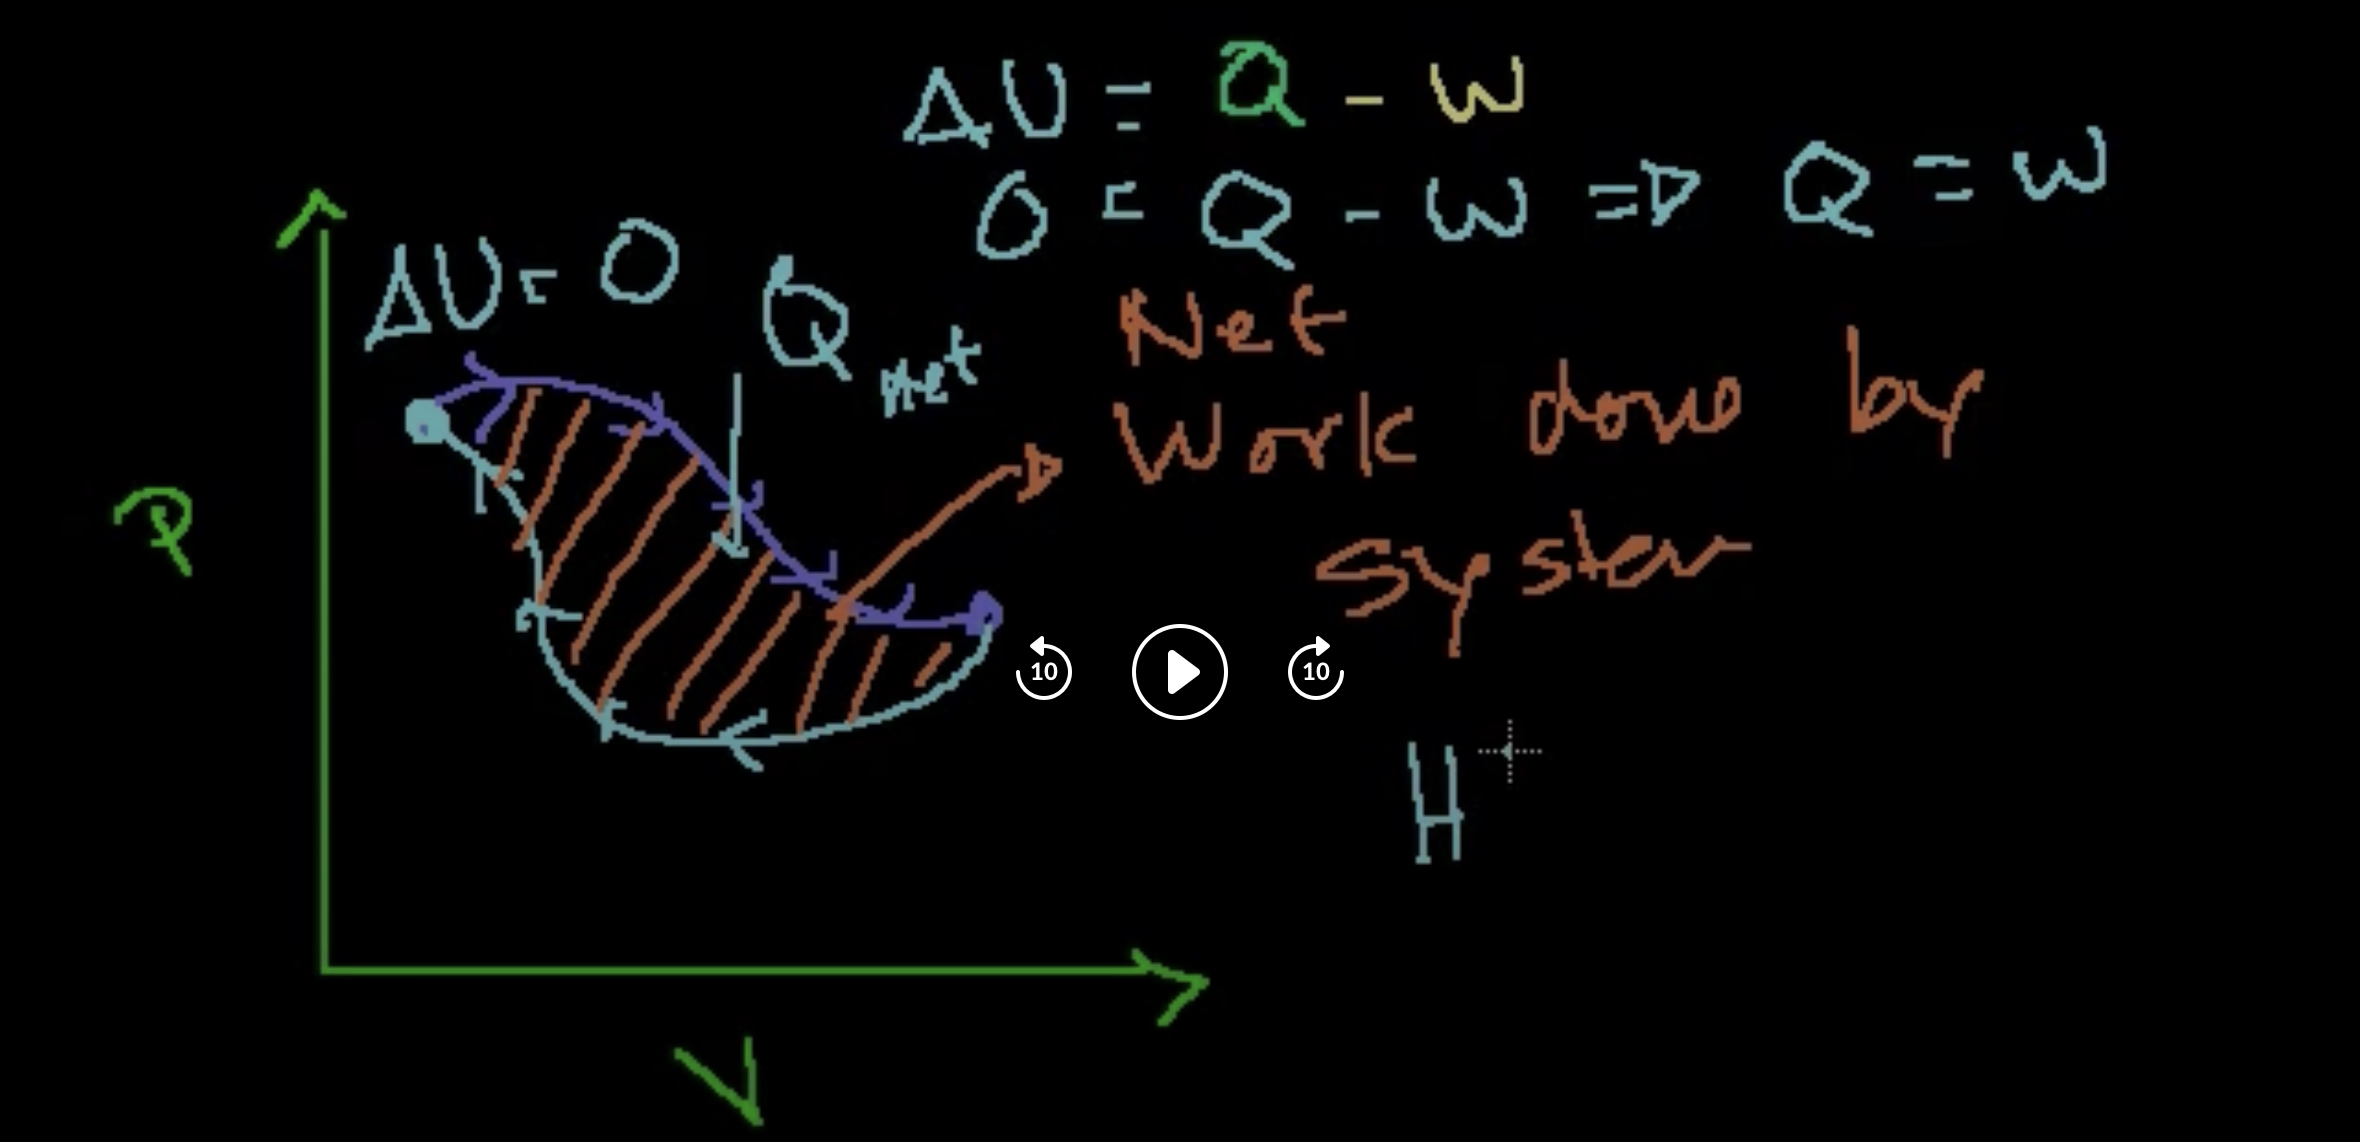 ΔU = Q - W
0 = Q - W ⇒ Q = W
ΔU = 0
Q net
Net
Work done by
system
P
10
10
H
V